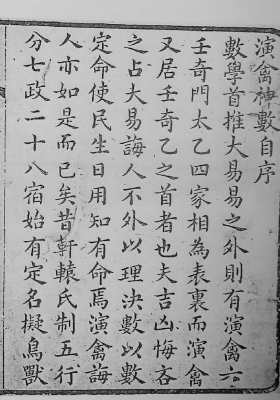 演禽神數自序
數學首推大易易之外則有演禽六
壬奇門太乙四家相為表裏而演禽
又居壬奇乙之首者也夫吉凶悔吝
之占大易誨人不外以理決數以數
定命使民生日用知有命焉演禽誨
人亦如是而已矣昔軒轅氏制五行
分七政二十八宿始有定名擬鳥獸